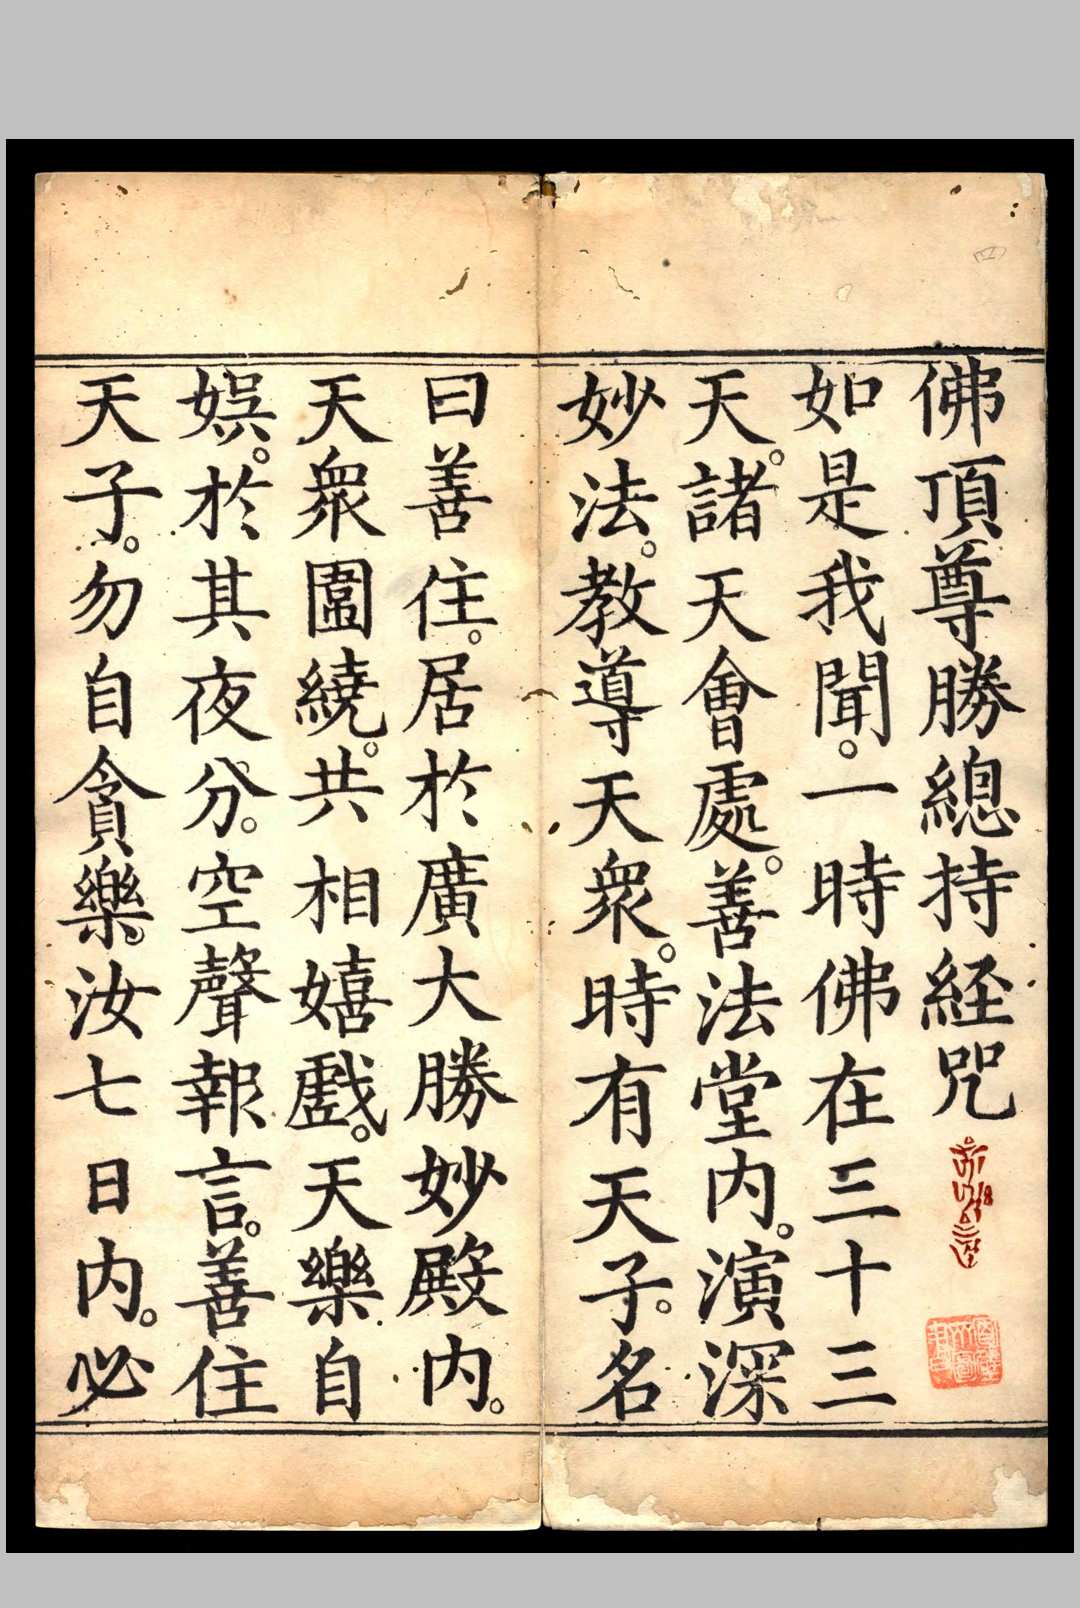 佛頂尊勝總持経咒
如是我聞。一時佛在三十三
天。諸天會處。善法堂内。演深
妙法。教導天衆。時有天子。名
曰善住。居於廣大勝妙殿内。
天衆圍繞。共相嬉戲。天樂自
娛。於其夜分。空聲報言。善住
天子。勿自貪樂。汝七日内。必